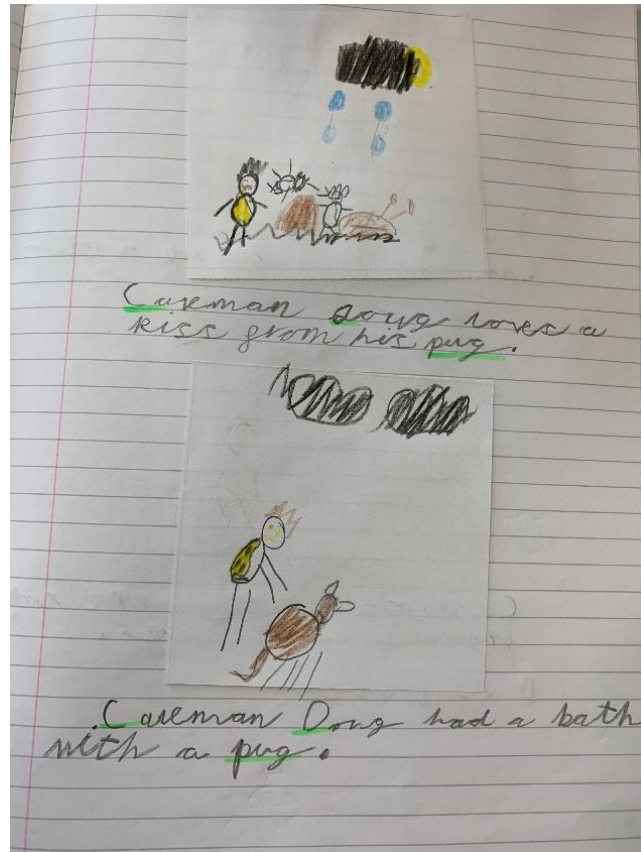 Caveman doug loves a
kiss from his pug.
Caveman Doug had a bath
with a pug.